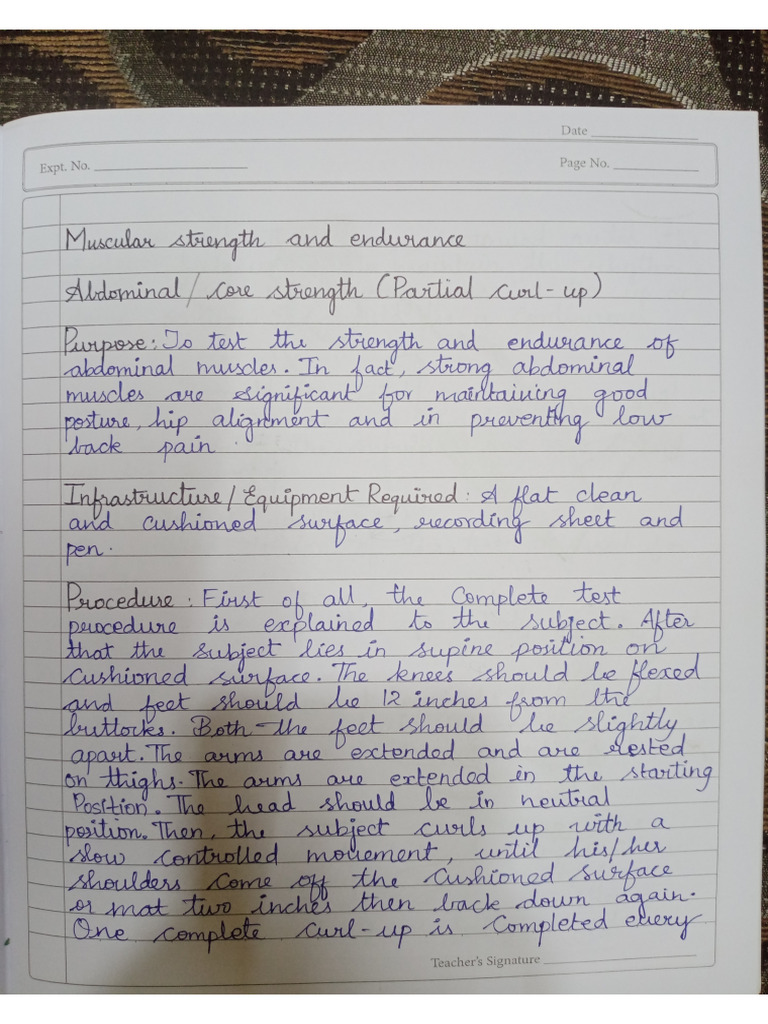 Date
Expt. No.
Page No.
Muscular strength and endurance
Abdominal / core strength (Partial curl-up)
Purpose: To test the strength and endurance of
abdominal muscles. In fact, strong abdominal
muscles are significant for maintaining good
posture, hip alignment and in preventing low
back pain.
Infrastructure / Equipment Required: A flat clean
and cushioned surface, recording sheet and
pen.
Procedure: First of all, the complete test
procedure is explained to the subject. After
that the subject lies in supine position on
cushioned surface. The knees should be flexed
and feet should be 12 inches from the
buttocks. Both the feet should be slightly
apart. The arms are extended and are rested
on thighs. The arms are extended in the starting
Position. The head should be in neutral
position. Then, the subject curls up with a
slow controlled movement, until his/her
shoulders come off the cushioned surface
or mat two inches then back down again.
One complete curl-up is completed every
Teacher's Signature